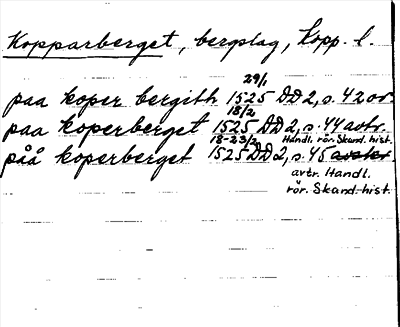 Kopparberget, bergslag, Kopp. l.
29/1
paa koper bergith 1525 DD2, s. 42 or.
18/2
paa koperberget 1525 DD2, s. 44 avtr.
18-23/2 Handl. rör. Skand. hist.
påå koperberget 1525 DD2, s. 45
avtr. Handl.
rör. Skand. hist.